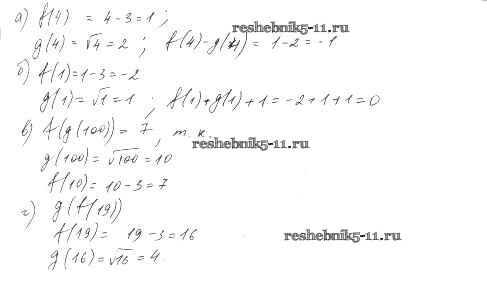 а) f(4) = 4-3=1;
reshebnik5-11.ru
g(4) = √4 = 2; f(4)-g(4) = 1-2=-1
б) f(1)=1-3=-2
g(1)=√1=1; f(1)+g(1)+1=-2+1+1=0
в) f(g(100))= 7, т.к.
reshebnik5-11.ru
g(100)=√100=10
f(10)=10-3=7
г) g(f(19))
f(19)= 19-3=16
reshebnik5-11.ru
g(16)=√16=4